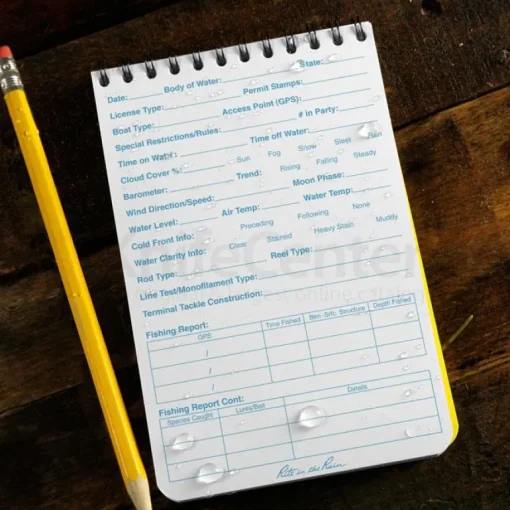 Date: Body of Water: State:
License Type: Permit Stamps:
Boat Type: Access Point (GPS):
Special Restrictions/Rules: # in Party:
Time on Water: Time off Water:
Cloud Cover %: Sun Fog Snow Sleet Rain
Barometer: Trend: Rising Falling Steady
Wind Direction/Speed: Moon Phase:
Water Level: Air Temp: Water Temp:
Cold Front Info: Preceding Following None
Water Clarity Info: Clear Stained Heavy Stain Muddy
Rod Type: Reel Type:
Line Test/Monofilament Type:
Terminal Tackle Construction:
Fishing Report:
GPS Time Fished Btm.-Srfc. Structure Depth Fished
/
/
/
Fishing Report Cont:
Species Caught Lures/Bait Details
Rite in the Rain